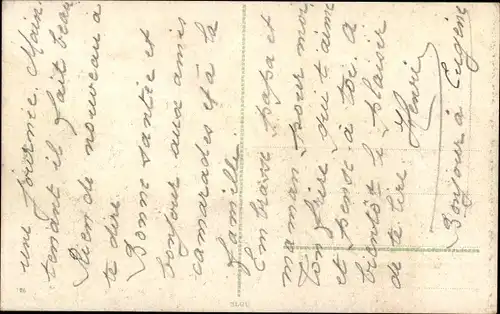 une journée. Main
tenant il fait beau
Rien de nouveau à
te dire
Bonne santée et
bonjour aux amis
camarades et à la
famille.
Embrasse papa et
maman pour moi
Ton frère qui t'aime
et pense à toi. A
bientôt le plaisir
de te lire.
Henri
Bonjour à Eugène